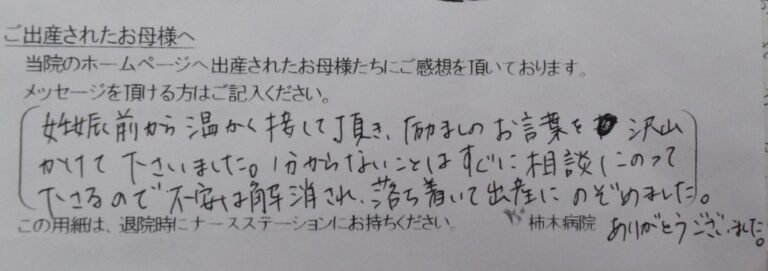 ご出産されたお母様へ
当院のホームページへ出産されたお母様たちにご感想を頂いております。
メッセージを頂ける方はご記入ください。
妊娠前から温かく接して頂き、励ましのお言葉を沢山
かけて下さいました。分からないことはすぐに相談にのって
下さるので不安は解消され、落ち着いて出産にのぞめました。
この用細は、退院時にナースステーションにお持ちください。 柿木病院 ありがとうございました。